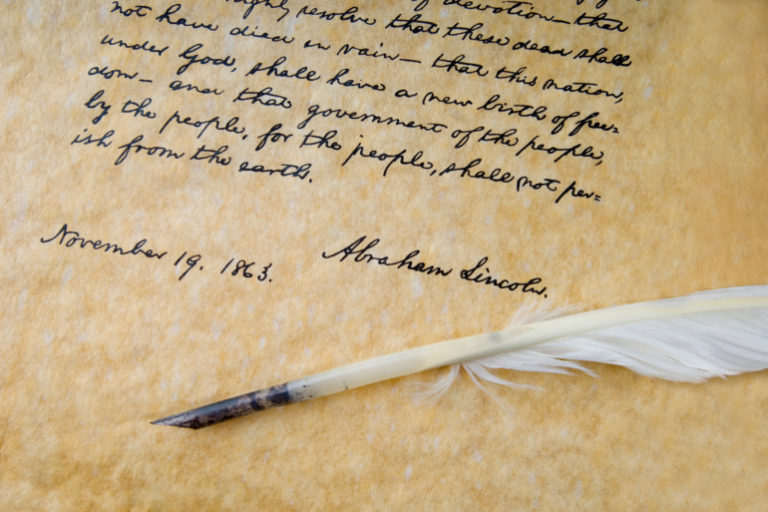 of devotion—that
resolve that these dead shall
not have died in vain— that this nation,
under God, shall have a new birth of free=
dom— and that government of the people,
by the people, for the people, shall not per=
ish from the earth.
November 19. 1863.
Abraham Lincoln.